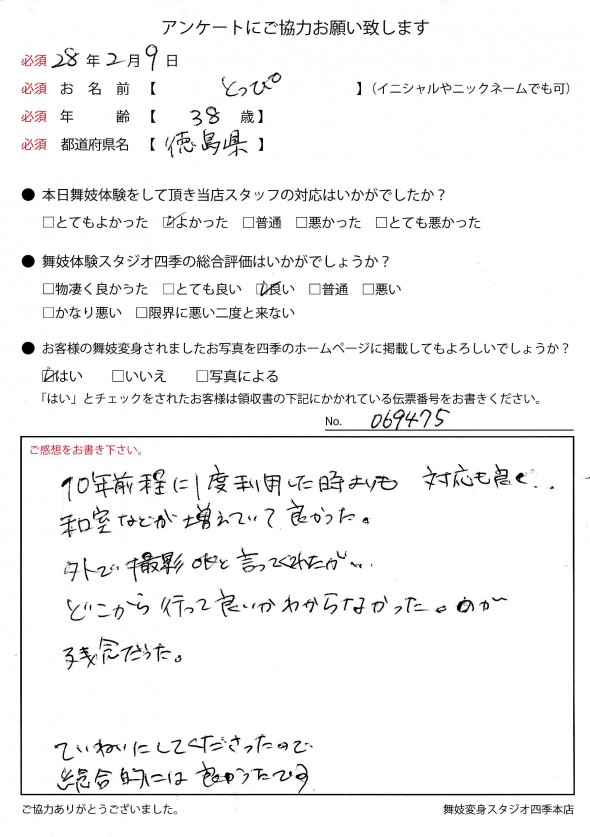 アンケートにご協力お願い致します
必須 28年2月9日
必須 お名前 【 とっぴ 】(イニシャルやニックネームでも可)
必須 年齢 【 38 歳】
必須 都道府県名 【 徳島県 】
● 本日舞妓体験をして頂き当店スタッフの対応はいかがでしたか？
□とてもよかった ☑よかった □普通 □悪かった □とても悪かった
● 舞妓体験スタジオ四季の総合評価はいかがでしょうか？
□物凄く良かった □とても良い ☑良い □普通 □悪い
□かなり悪い □限界に悪い二度と来ない
● お客様の舞妓変身されましたお写真を四季のホームページに掲載してもよろしいでしょうか？
☑はい □いいえ □写真による
「はい」とチェックをされたお客様は領収書の下記にかかれている伝票番号をお書きください。
No. 069475
ご感想をお書き下さい。
10年前程に1度利用した時よりも 対応も良く...
和室などが増えていて良かった。
外で撮影OKと言ってくれたが...
どこから行って良いかわからなかった。のが
残念だった。
ていねいにしてくださったので
総合的には良かったです
ご協力ありがとうございました。
舞妓変身スタジオ四季本店